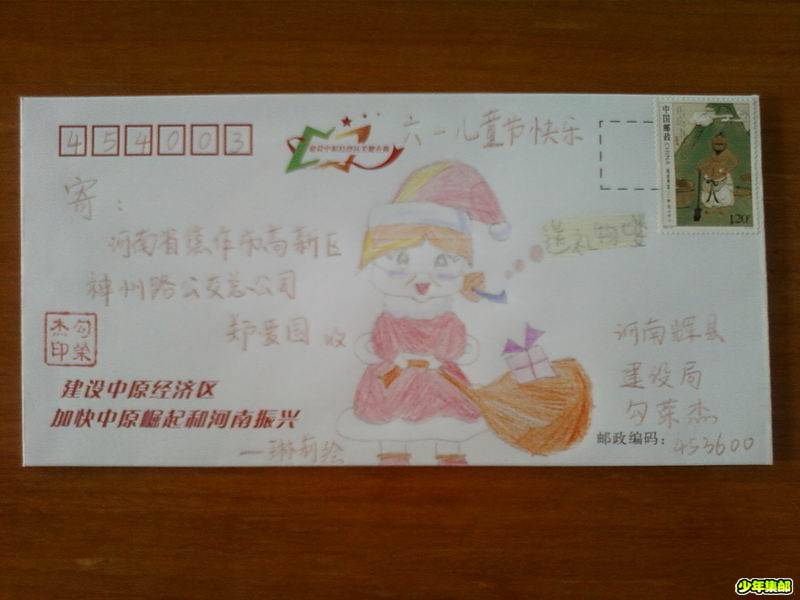 454003
六一儿童节快乐
中国邮政 CHINA
120
寄：
河南省焦作市高新区
神州路公交总公司
郑爱国 收
送礼物喽
勾荣
杰印
河南辉县
建设局
勾荣杰
建设中原经济区
加快中原崛起和河南振兴
一琳莉绘
邮政编码：453600
少年集邮